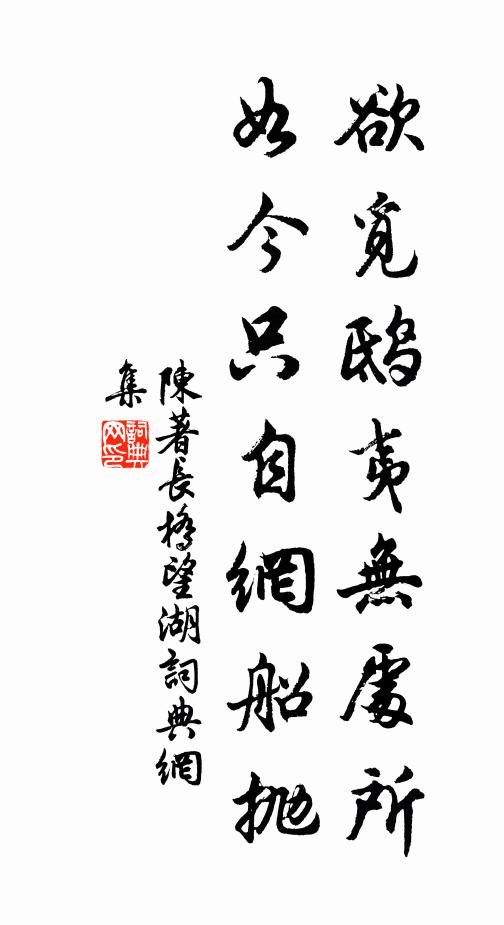 欲覓鴟夷無處所
如今只自網船拋
陳著長橋望湖詞典網
集
詞典
网印